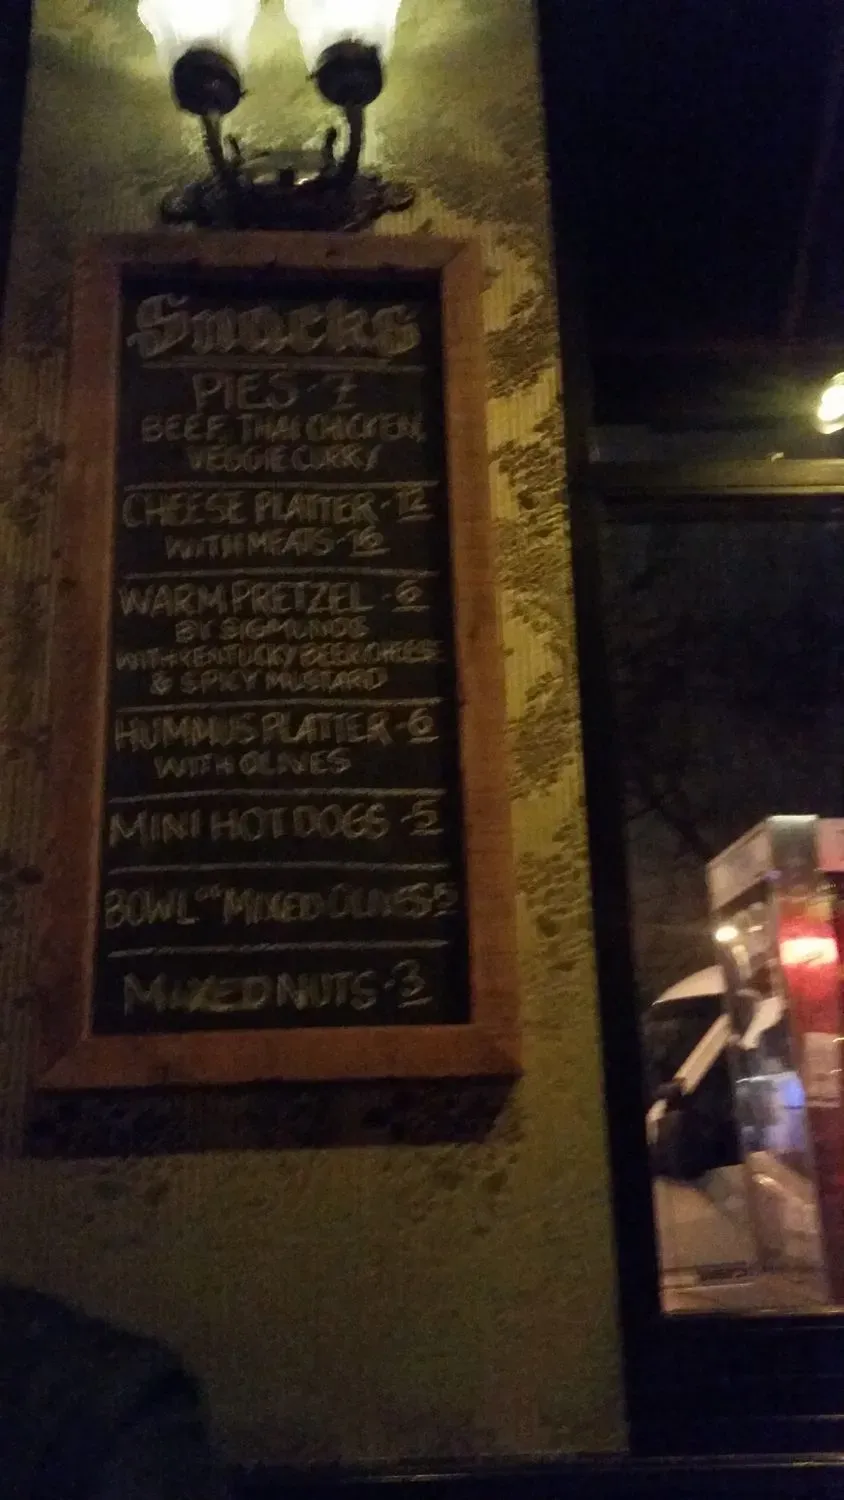 Snacks
PIES - 7
BEEF, THAI CHICKEN,
VEGGIE CURRY
CHEESE PLATTER - 12
WITH MEATS - 16
WARM PRETZEL - 6
BY SIGMUNDS
WITH KENTUCKY BEER CHEESE
& SPICY MUSTARD
HUMMUS PLATTER - 6
WITH OLIVES
MINI HOT DOGS - 5
BOWL OF MIXED OLIVES - 5
MIXED NUTS - 3